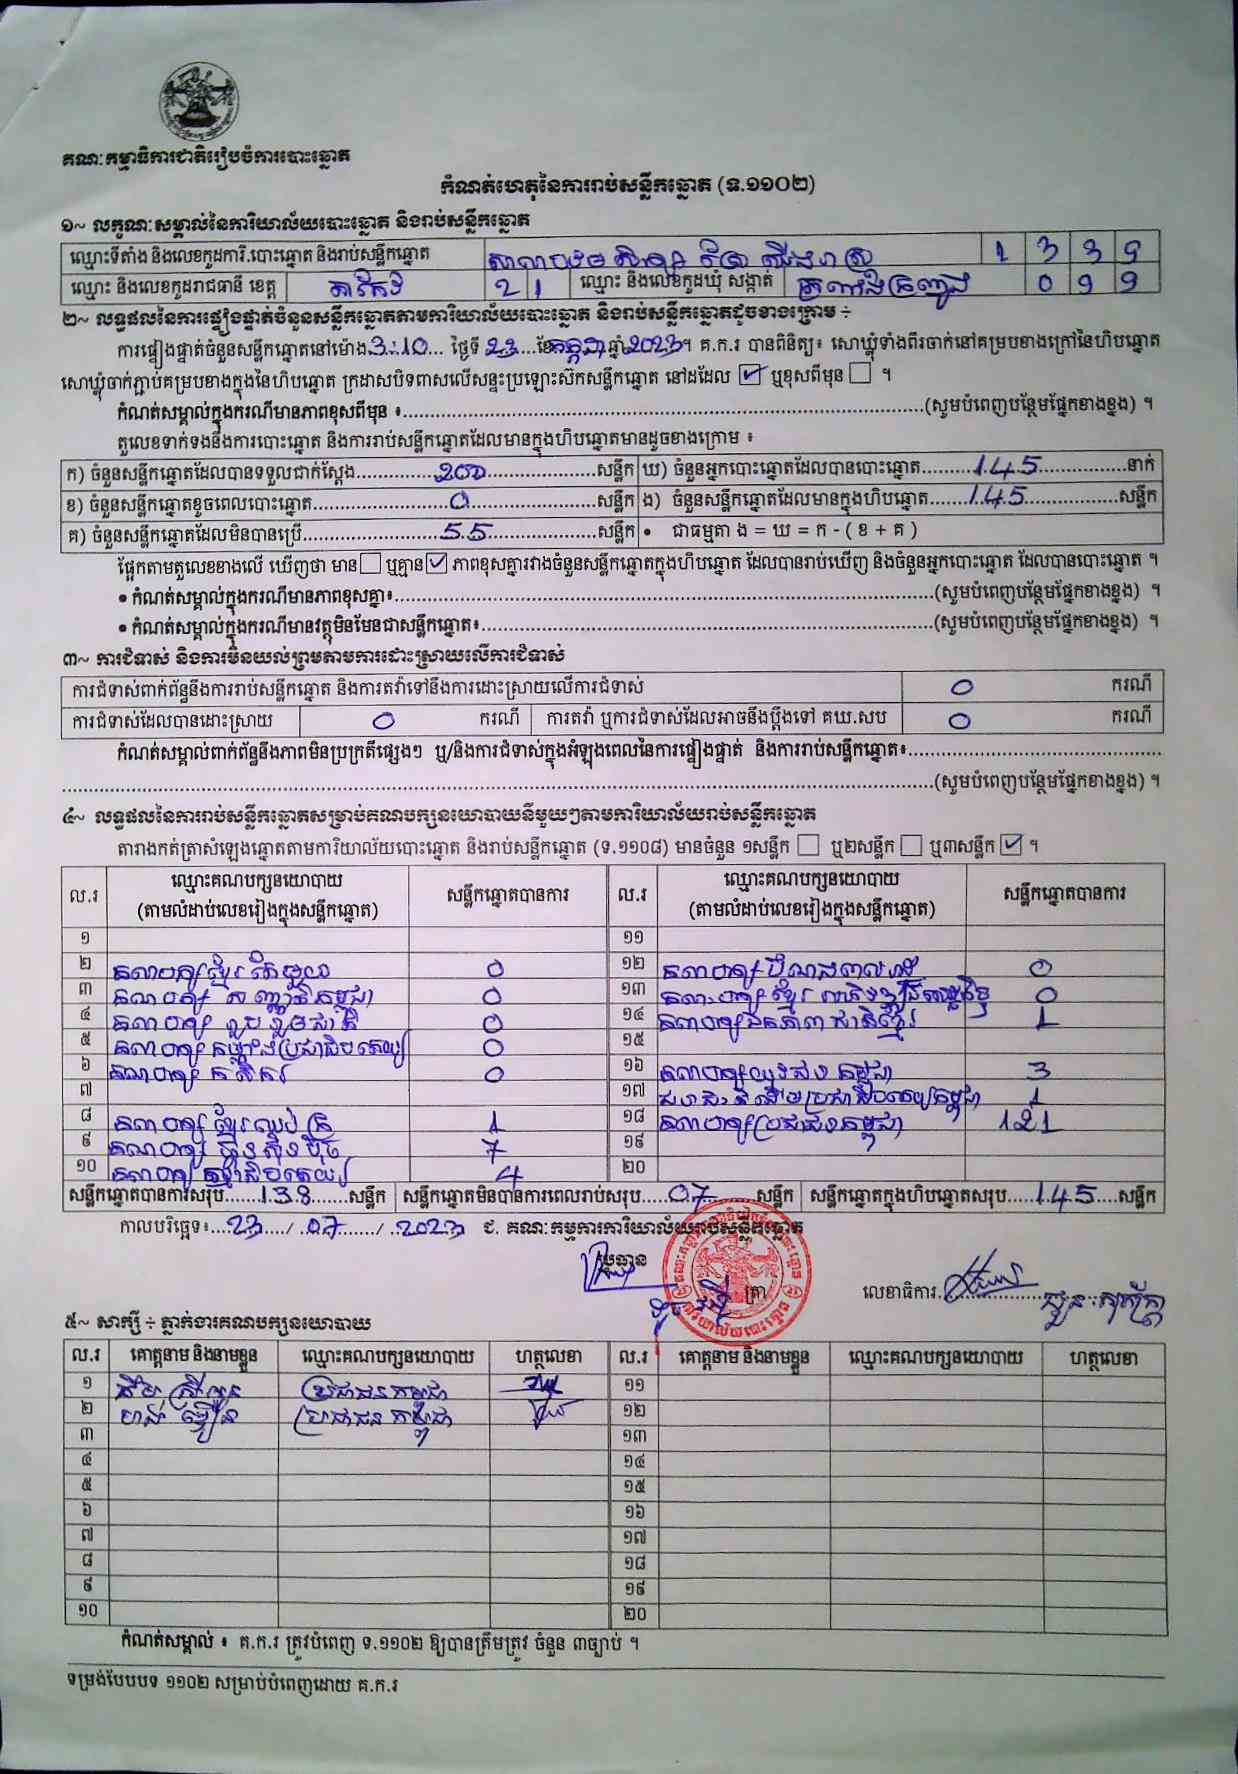 គណៈកម្មាធិការជាតិរៀបចំការបោះឆ្នោត
កំណត់ហេតុនៃការរាប់សន្លឹកឆ្នោត (ទ.១១០២)
១~ លក្ខណៈសម្គាល់នៃការិយាល័យបោះឆ្នោត និងរាប់សន្លឹកឆ្នោត
ឈ្មោះទីតាំង និងលេខកូដការិ.បោះឆ្នោត និងរាប់សន្លឹកឆ្នោត 1 3 3 9
ឈ្មោះ និងលេខកូដរាជធានី ខេត្ត តាកែវ 2 1 ឈ្មោះ និងលេខកូដឃុំ សង្កាត់ 0 9 9
២~ លទ្ធផលនៃការផ្ទៀងផ្ទាត់ចំនួនសន្លឹកឆ្នោតតាមការិយាល័យបោះឆ្នោត និងរាប់សន្លឹកឆ្នោតដូចខាងក្រោម ÷
ការផ្ទៀងផ្ទាត់ចំនួនសន្លឹកឆ្នោតនៅម៉ោង 3:10 ថ្ងៃទី 23 ខែ កក្កដា ឆ្នាំ 2023 ។ គ.ក.រ បានពិនិត្យ៖ សោឃ្លុំទាំងពីរចាក់នៅគម្របខាងក្រៅនៃហិបឆ្នោត
សោឃ្លុំចាក់ភ្ជាប់គម្របខាងក្នុងនៃហិបឆ្នោត ក្រដាសបិទពាសលើសន្ទះប្រឡោះស៊កសន្លឹកឆ្នោត នៅដដែល ☑ ឬខុសពីមុន ☐ ។
កំណត់សម្គាល់ក្នុងករណីមានភាពខុសពីមុន ៖ (សូមបំពេញបន្ថែមផ្នែកខាងខ្នង) ។
តួលេខទាក់ទងនឹងការបោះឆ្នោត និងការរាប់សន្លឹកឆ្នោតដែលមានក្នុងហិបឆ្នោតមានដូចខាងក្រោម ៖
ក) ចំនួនសន្លឹកឆ្នោតដែលបានទទួលជាក់ស្ដែង 200 សន្លឹក ឃ) ចំនួនអ្នកបោះឆ្នោតដែលបានបោះឆ្នោត 145 នាក់
ខ) ចំនួនសន្លឹកឆ្នោតខូចពេលបោះឆ្នោត 0 សន្លឹក ង) ចំនួនសន្លឹកឆ្នោតដែលមានក្នុងហិបឆ្នោត 145 សន្លឹក
គ) ចំនួនសន្លឹកឆ្នោតដែលមិនបានប្រើ 55 សន្លឹក • ជាធម្មតា ង = ឃ = ក - ( ខ + គ )
ផ្អែកតាមតួលេខខាងលើ ឃើញថា មាន ☐ ឬគ្មាន ☑ ភាពខុសគ្នារវាងចំនួនសន្លឹកឆ្នោតក្នុងហិបឆ្នោត ដែលបានរាប់ឃើញ និងចំនួនអ្នកបោះឆ្នោត ដែលបានបោះឆ្នោត ។
• កំណត់សម្គាល់ក្នុងករណីមានភាពខុសគ្នា៖ (សូមបំពេញបន្ថែមផ្នែកខាងខ្នង) ។
• កំណត់សម្គាល់ក្នុងករណីមានវត្ថុមិនមែនជាសន្លឹកឆ្នោត៖ (សូមបំពេញបន្ថែមផ្នែកខាងខ្នង) ។
៣~ ការជំទាស់ និងការមិនយល់ព្រមតាមការដោះស្រាយលើការជំទាស់
ការជំទាស់ពាក់ព័ន្ធនឹងការរាប់សន្លឹកឆ្នោត និងការតវ៉ាទៅនឹងការដោះស្រាយលើការជំទាស់ 0 ករណី
ការជំទាស់ដែលបានដោះស្រាយ 0 ករណី ការតវ៉ា ឬការជំទាស់ដែលអាចនឹងប្ដឹងទៅ គឃ.សប 0 ករណី
កំណត់សម្គាល់ពាក់ព័ន្ធនឹងភាពមិនប្រក្រតីផ្សេងៗ ឬ/និងការជំទាស់ក្នុងអំឡុងពេលនៃការផ្ទៀងផ្ទាត់ និងការរាប់សន្លឹកឆ្នោត៖
(សូមបំពេញបន្ថែមផ្នែកខាងខ្នង) ។
៤~ លទ្ធផលនៃការរាប់សន្លឹកឆ្នោតសម្រាប់គណបក្សនយោបាយនីមួយៗតាមការិយាល័យរាប់សន្លឹកឆ្នោត
តារាងកត់ត្រាសំឡេងឆ្នោតតាមការិយាល័យបោះឆ្នោត និងរាប់សន្លឹកឆ្នោត (ទ.១១០៨) មានចំនួន ១សន្លឹក ☐ ឬ២សន្លឹក ☐ ឬ៣សន្លឹក ☑ ។
ល.រ ឈ្មោះគណបក្សនយោបាយ (តាមលំដាប់លេខរៀងក្នុងសន្លឹកឆ្នោត) សន្លឹកឆ្នោតបានការ ល.រ ឈ្មោះគណបក្សនយោបាយ (តាមលំដាប់លេខរៀងក្នុងសន្លឹកឆ្នោត) សន្លឹកឆ្នោតបានការ
១ ១១
២ គណបក្សខ្មែរតែមួយ 0 ១២ គណបក្ស 0
៣ គណបក្ស សញ្ជាតិកម្ពុជា 0 ១៣ គណៈបក្សខ្មែរ 0
៤ គណបក្ស រួបរួមជាតិ 0 ១៤ គណបក្សឯកភាពជាតិខ្មែរ 1
៥ គណបក្ស កម្លាំងប្រជាធិបតេយ្យ 0 ១៥
៦ គណបក្ស កសិករ 0 ១៦ គណបក្សយុវជនកម្ពុជា 3
៧ ១៧ ប្រជាធិបតេយ្យកម្ពុជា 1
៨ គណបក្ស ខ្មែរឈប់ក្រ 1 ១៨ គណបក្សប្រជាជនកម្ពុជា 121
៩ គណបក្ស ហ៊្វុនស៊ិនប៉ិច 7 ១៩
១០ គណបក្ស ធម្មាធិបតេយ្យ 4 ២០
សន្លឹកឆ្នោតបានការសរុប 138 សន្លឹក សន្លឹកឆ្នោតមិនបានការពេលរាប់សរុប 07 សន្លឹក សន្លឹកឆ្នោតក្នុងហិបឆ្នោតសរុប 145 សន្លឹក
កាលបរិច្ឆេទ៖ 23 / 07 / 2023 ជ. គណៈកម្មការការិយាល័យរាប់សន្លឹកឆ្នោត
ប្រធាន ត្រា លេខាធិការ
៥~ សាក្សី ÷ ភ្នាក់ងារគណបក្សនយោបាយ
ល.រ គោត្តនាម និងនាមខ្លួន ឈ្មោះគណបក្សនយោបាយ ហត្ថលេខា ល.រ គោត្តនាម និងនាមខ្លួន ឈ្មោះគណបក្សនយោបាយ ហត្ថលេខា
១ ប្រជាជនកម្ពុជា ១១
២ ប្រជាជនកម្ពុជា ១២
៣ ១៣
៤ ១៤
៥ ១៥
៦ ១៦
៧ ១៧
៨ ១៨
៩ ១៩
១០ ២០
កំណត់សម្គាល់ ៖ គ.ក.រ ត្រូវបំពេញ ទ.១១០២ ឱ្យបានត្រឹមត្រូវ ចំនួន ៣ច្បាប់ ។
ទម្រង់បែបបទ ១១០២ សម្រាប់បំពេញដោយ គ.ក.រ